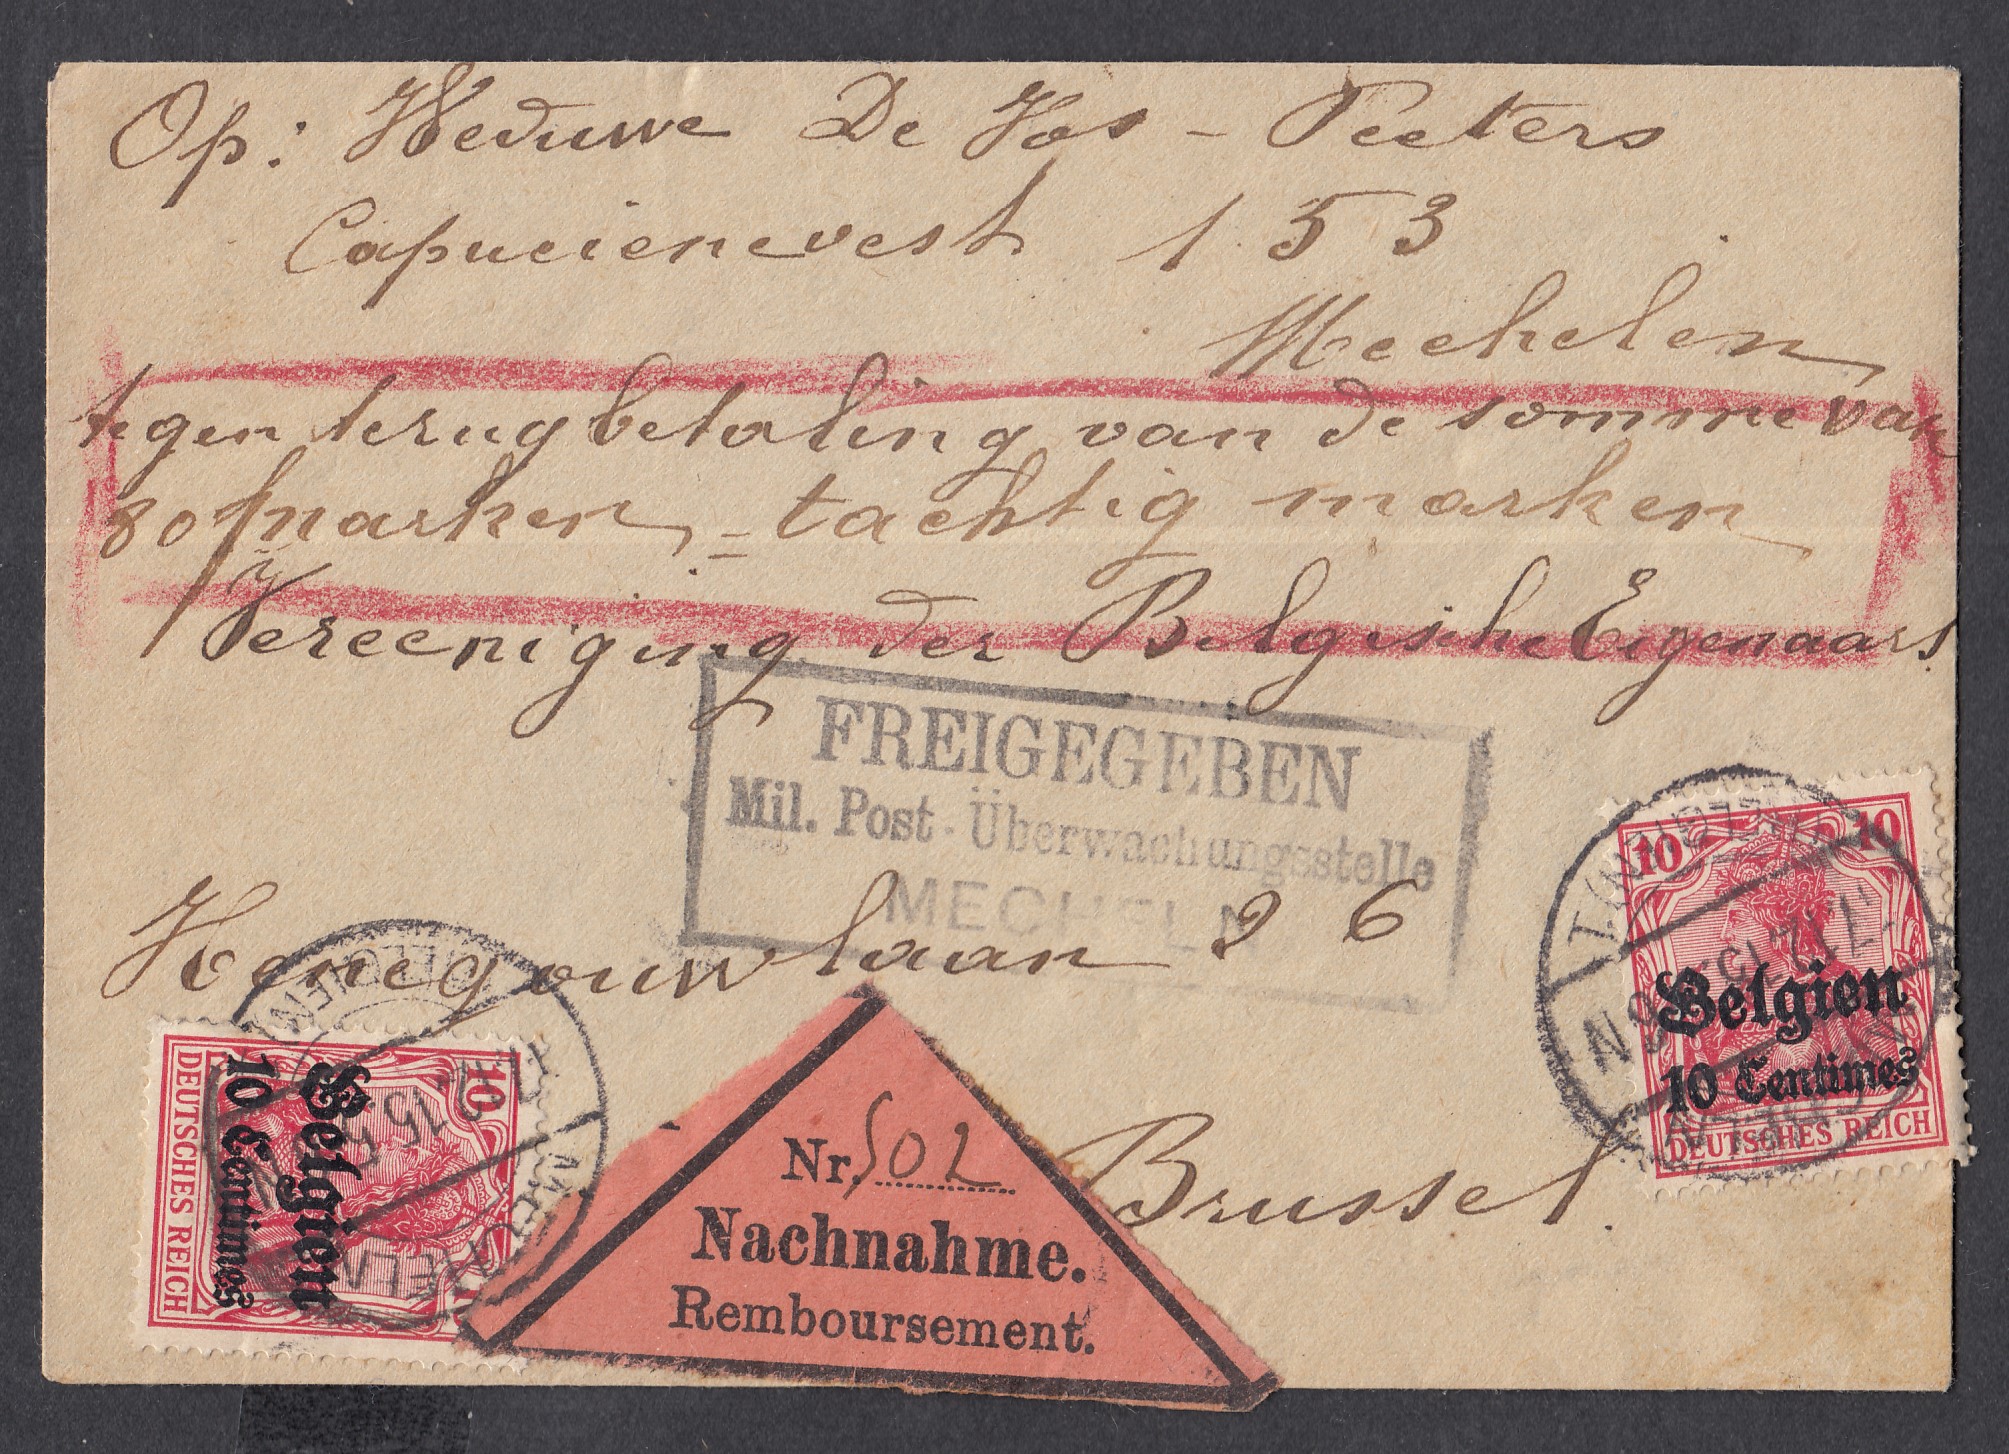 Op: Weduwe De Vos - Peeters
Capucienevest 153
Mechelen
tegen terugbetaling van de somme van
80 marken = tachtig marken
Vereeniging der Belgische Eigenaars
FREIGEGEBEN
Mil. Post-Überwachungsstelle
MECHELN
Henegouwlaan 96
Brussel.
10 10
Belgien
10 Centimes
DEUTSCHES REICH
10
Belgien
10 Centimes
DEUTSCHES REICH
MECHELN
(BELGIEN)
Nr. 502
Nachnahme.
Remboursement.